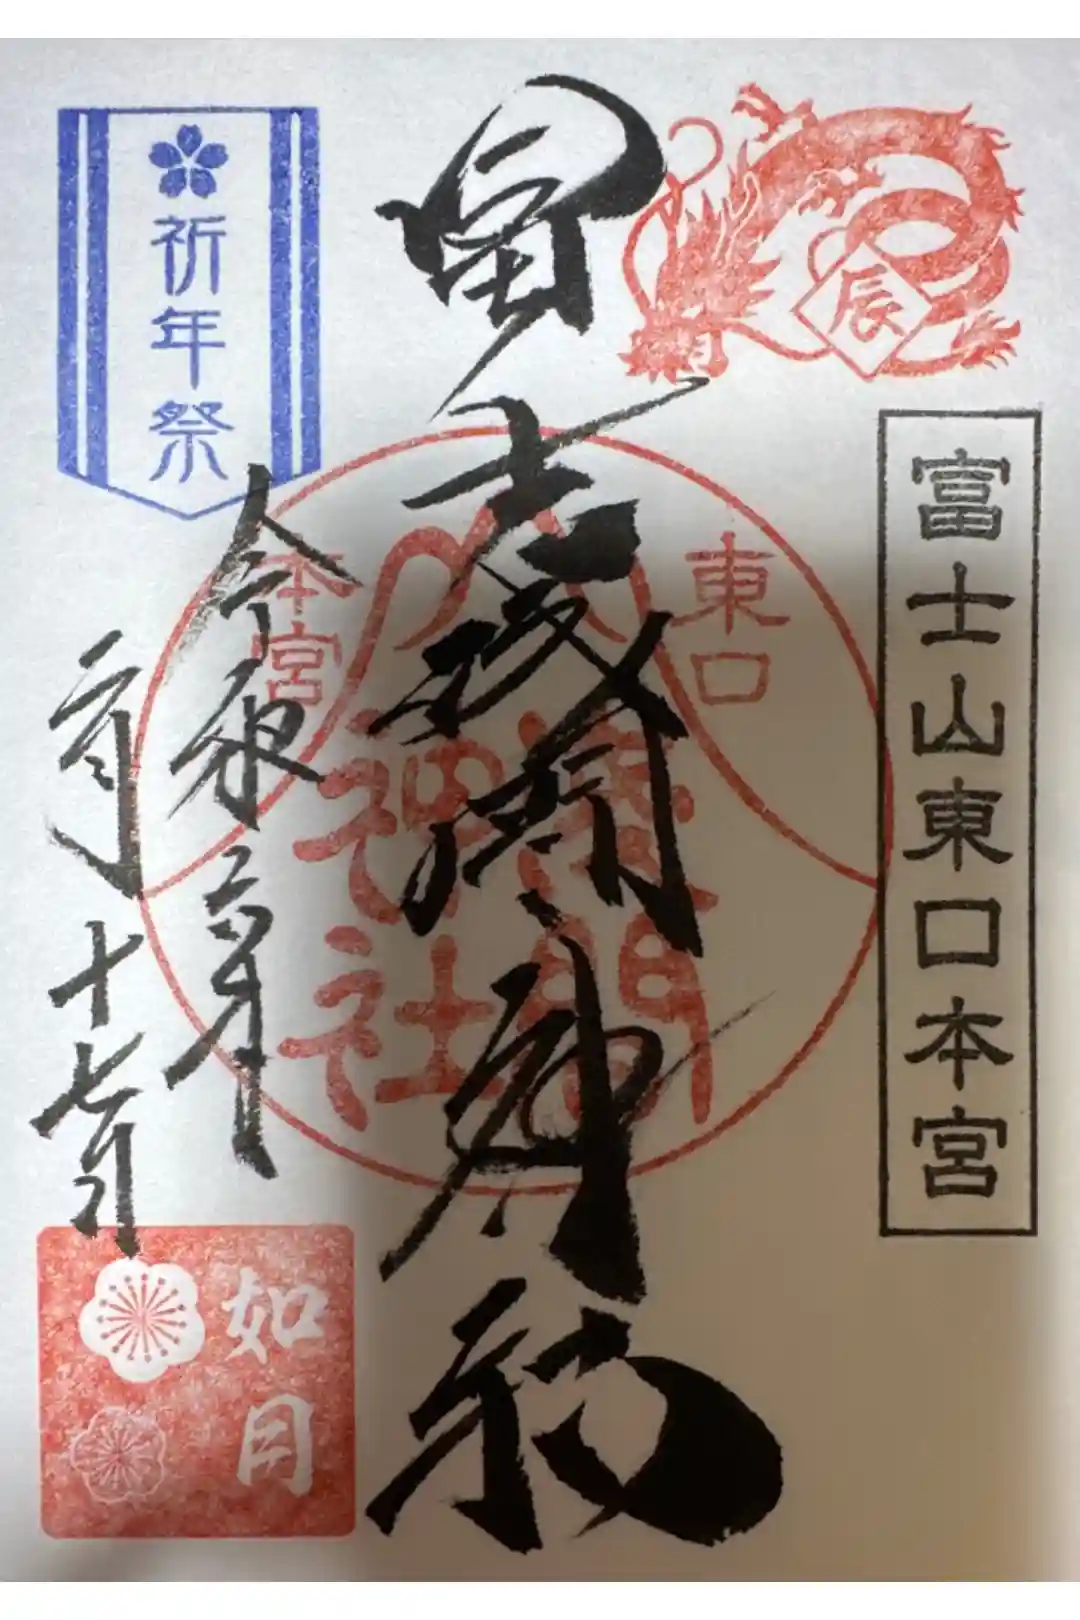 辰
富士山東口本宮
冨士浅間神社
東口
本宮
浅間
神社
祈年祭
令和六年
二月十七日
如月